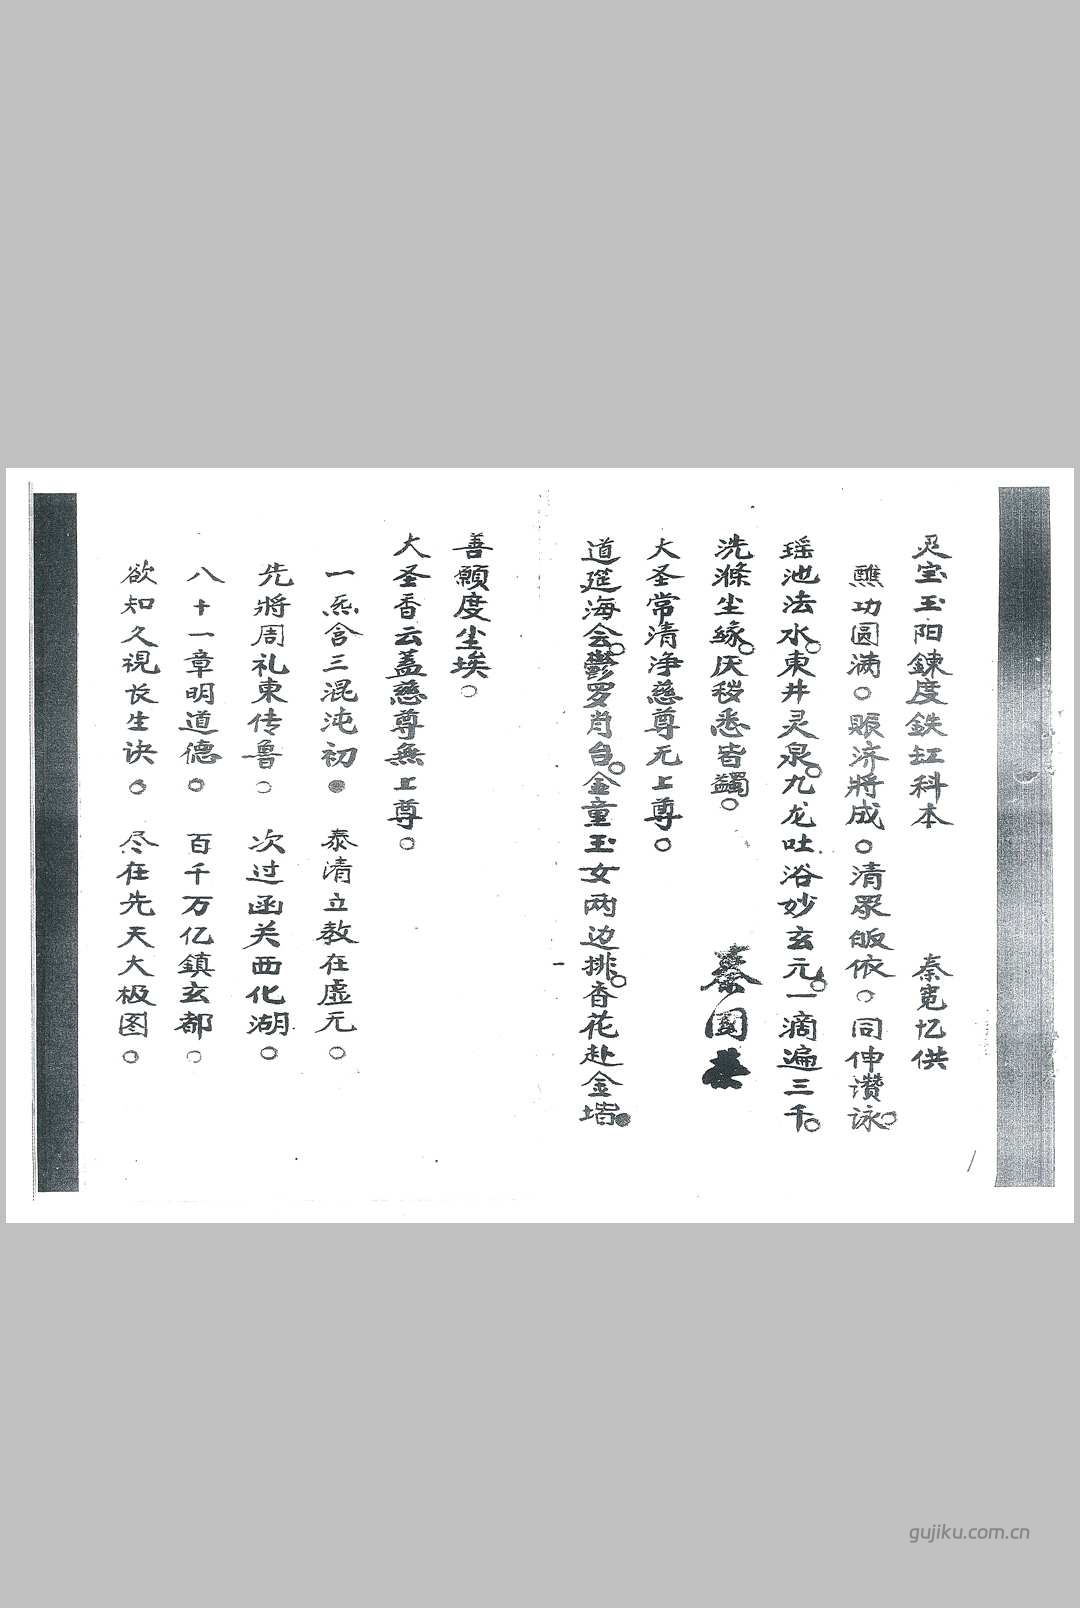 灵宝玉阳鍊度鉄缸科本　秦宽忆供
醮功圆满○赈济將成○清眾皈依○同伸讚詠○
瑶池法水○東井灵泉○九龙吐浴妙玄元○一滴遍三千○
洗滌尘緣○厌秽悉皆蠲○
秦国
大圣常清净慈尊无上尊○
道筵海会○鬱罗肖台○金童玉女两边排○香花赴金堦○
一
善願度尘埃○
大圣香云盖慈尊無上尊○
一炁含三混沌初○　泰清立教在虚无○
先將周礼東传鲁○　次过函关西化湖○
八十一章明道德○　百千万亿鎮玄都○
欲知久視长生诀○　尽在先天大极图○
gujiku.com.cn